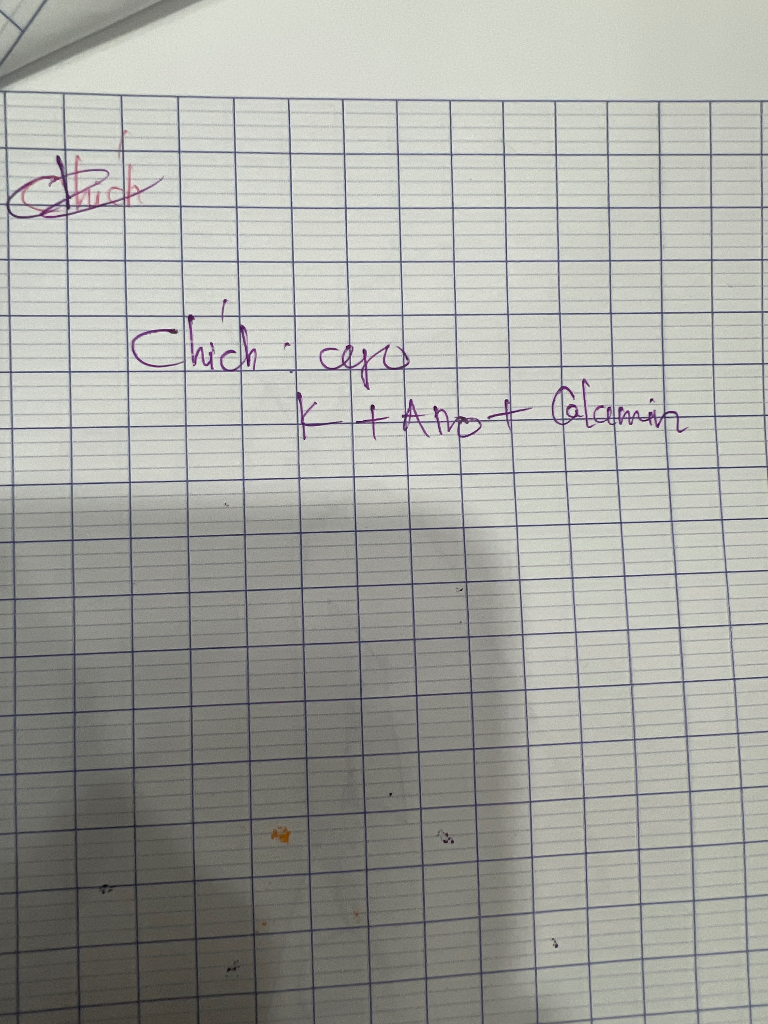 Chích
Chích : cyo
K + Amo + Calcamin